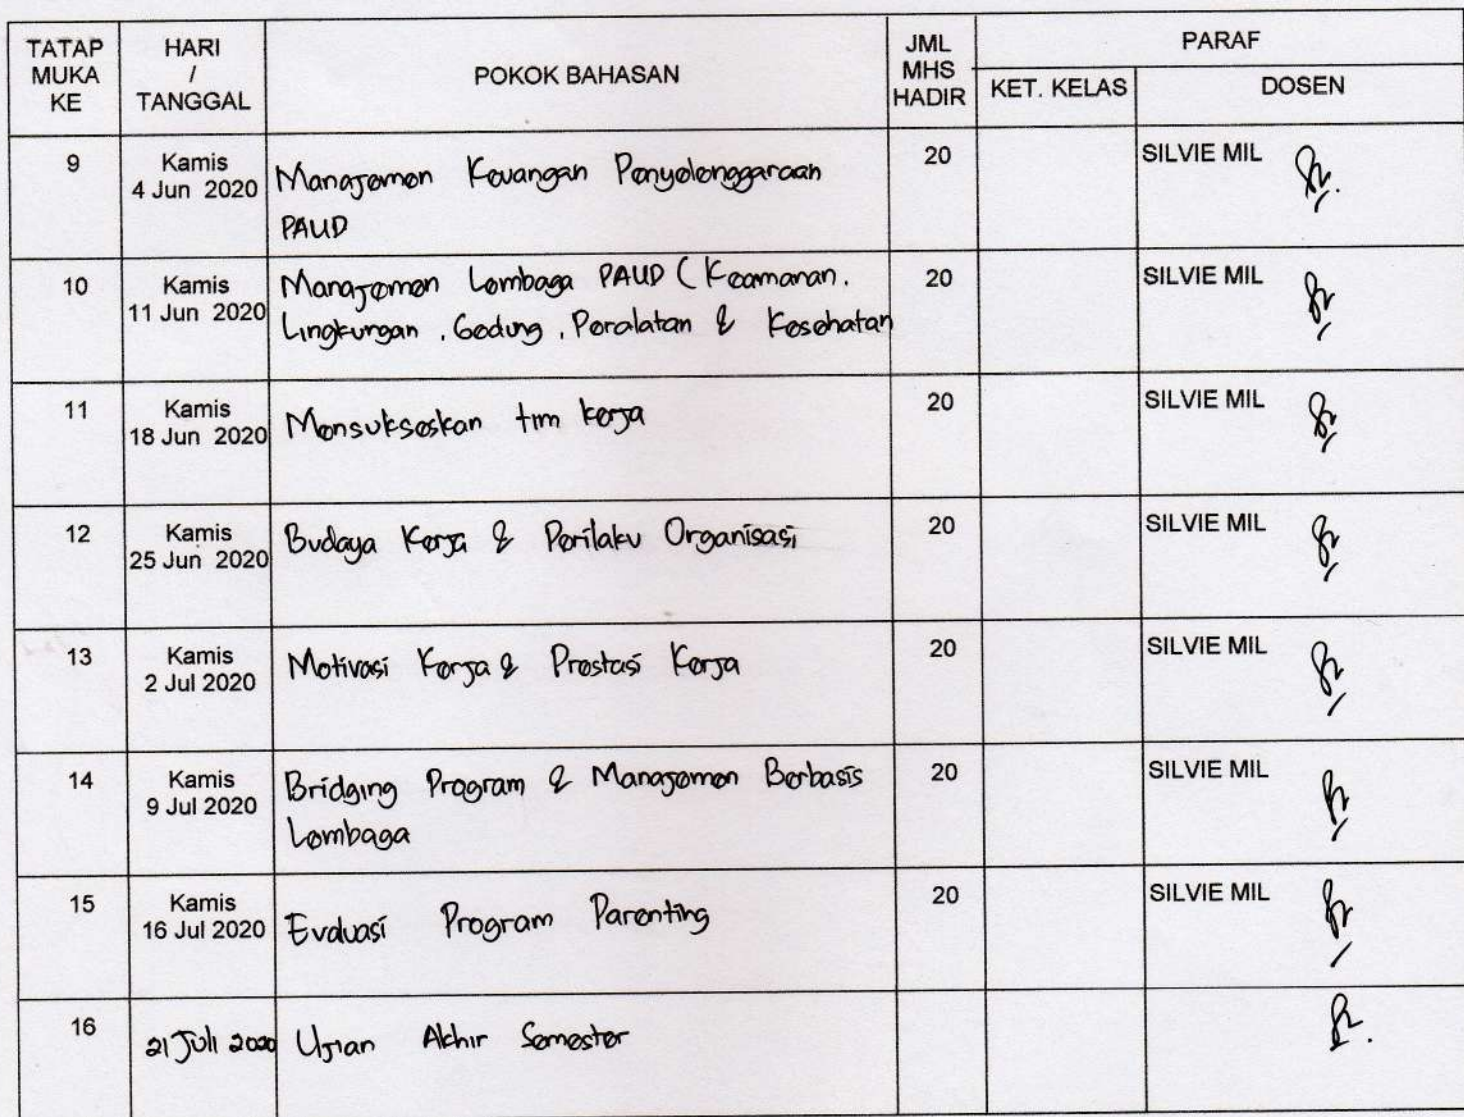 TATAP MUKA KE
HARI / TANGGAL
POKOK BAHASAN
JML MHS HADIR
PARAF
KET. KELAS
DOSEN
9
Kamis
4 Jun 2020
Manajemen Keuangan Penyelenggaraan
PAUD
20
SILVIE MIL
10
Kamis
11 Jun 2020
Manajemen Lembaga PAUD (Keamanan,
Lingkungan, Gedung, Peralatan & Kesehatan
20
SILVIE MIL
11
Kamis
18 Jun 2020
Mensukseskan tim kerja
20
SILVIE MIL
12
Kamis
25 Jun 2020
Budaya Kerja & Perilaku Organisasi
20
SILVIE MIL
13
Kamis
2 Jul 2020
Motivasi Kerja & Prestasi Kerja
20
SILVIE MIL
14
Kamis
9 Jul 2020
Bridging Program & Manajemen Berbasis
Lembaga
20
SILVIE MIL
15
Kamis
16 Jul 2020
Evaluasi Program Parenting
20
SILVIE MIL
16
21 Juli 2020
Ujian Akhir Semester